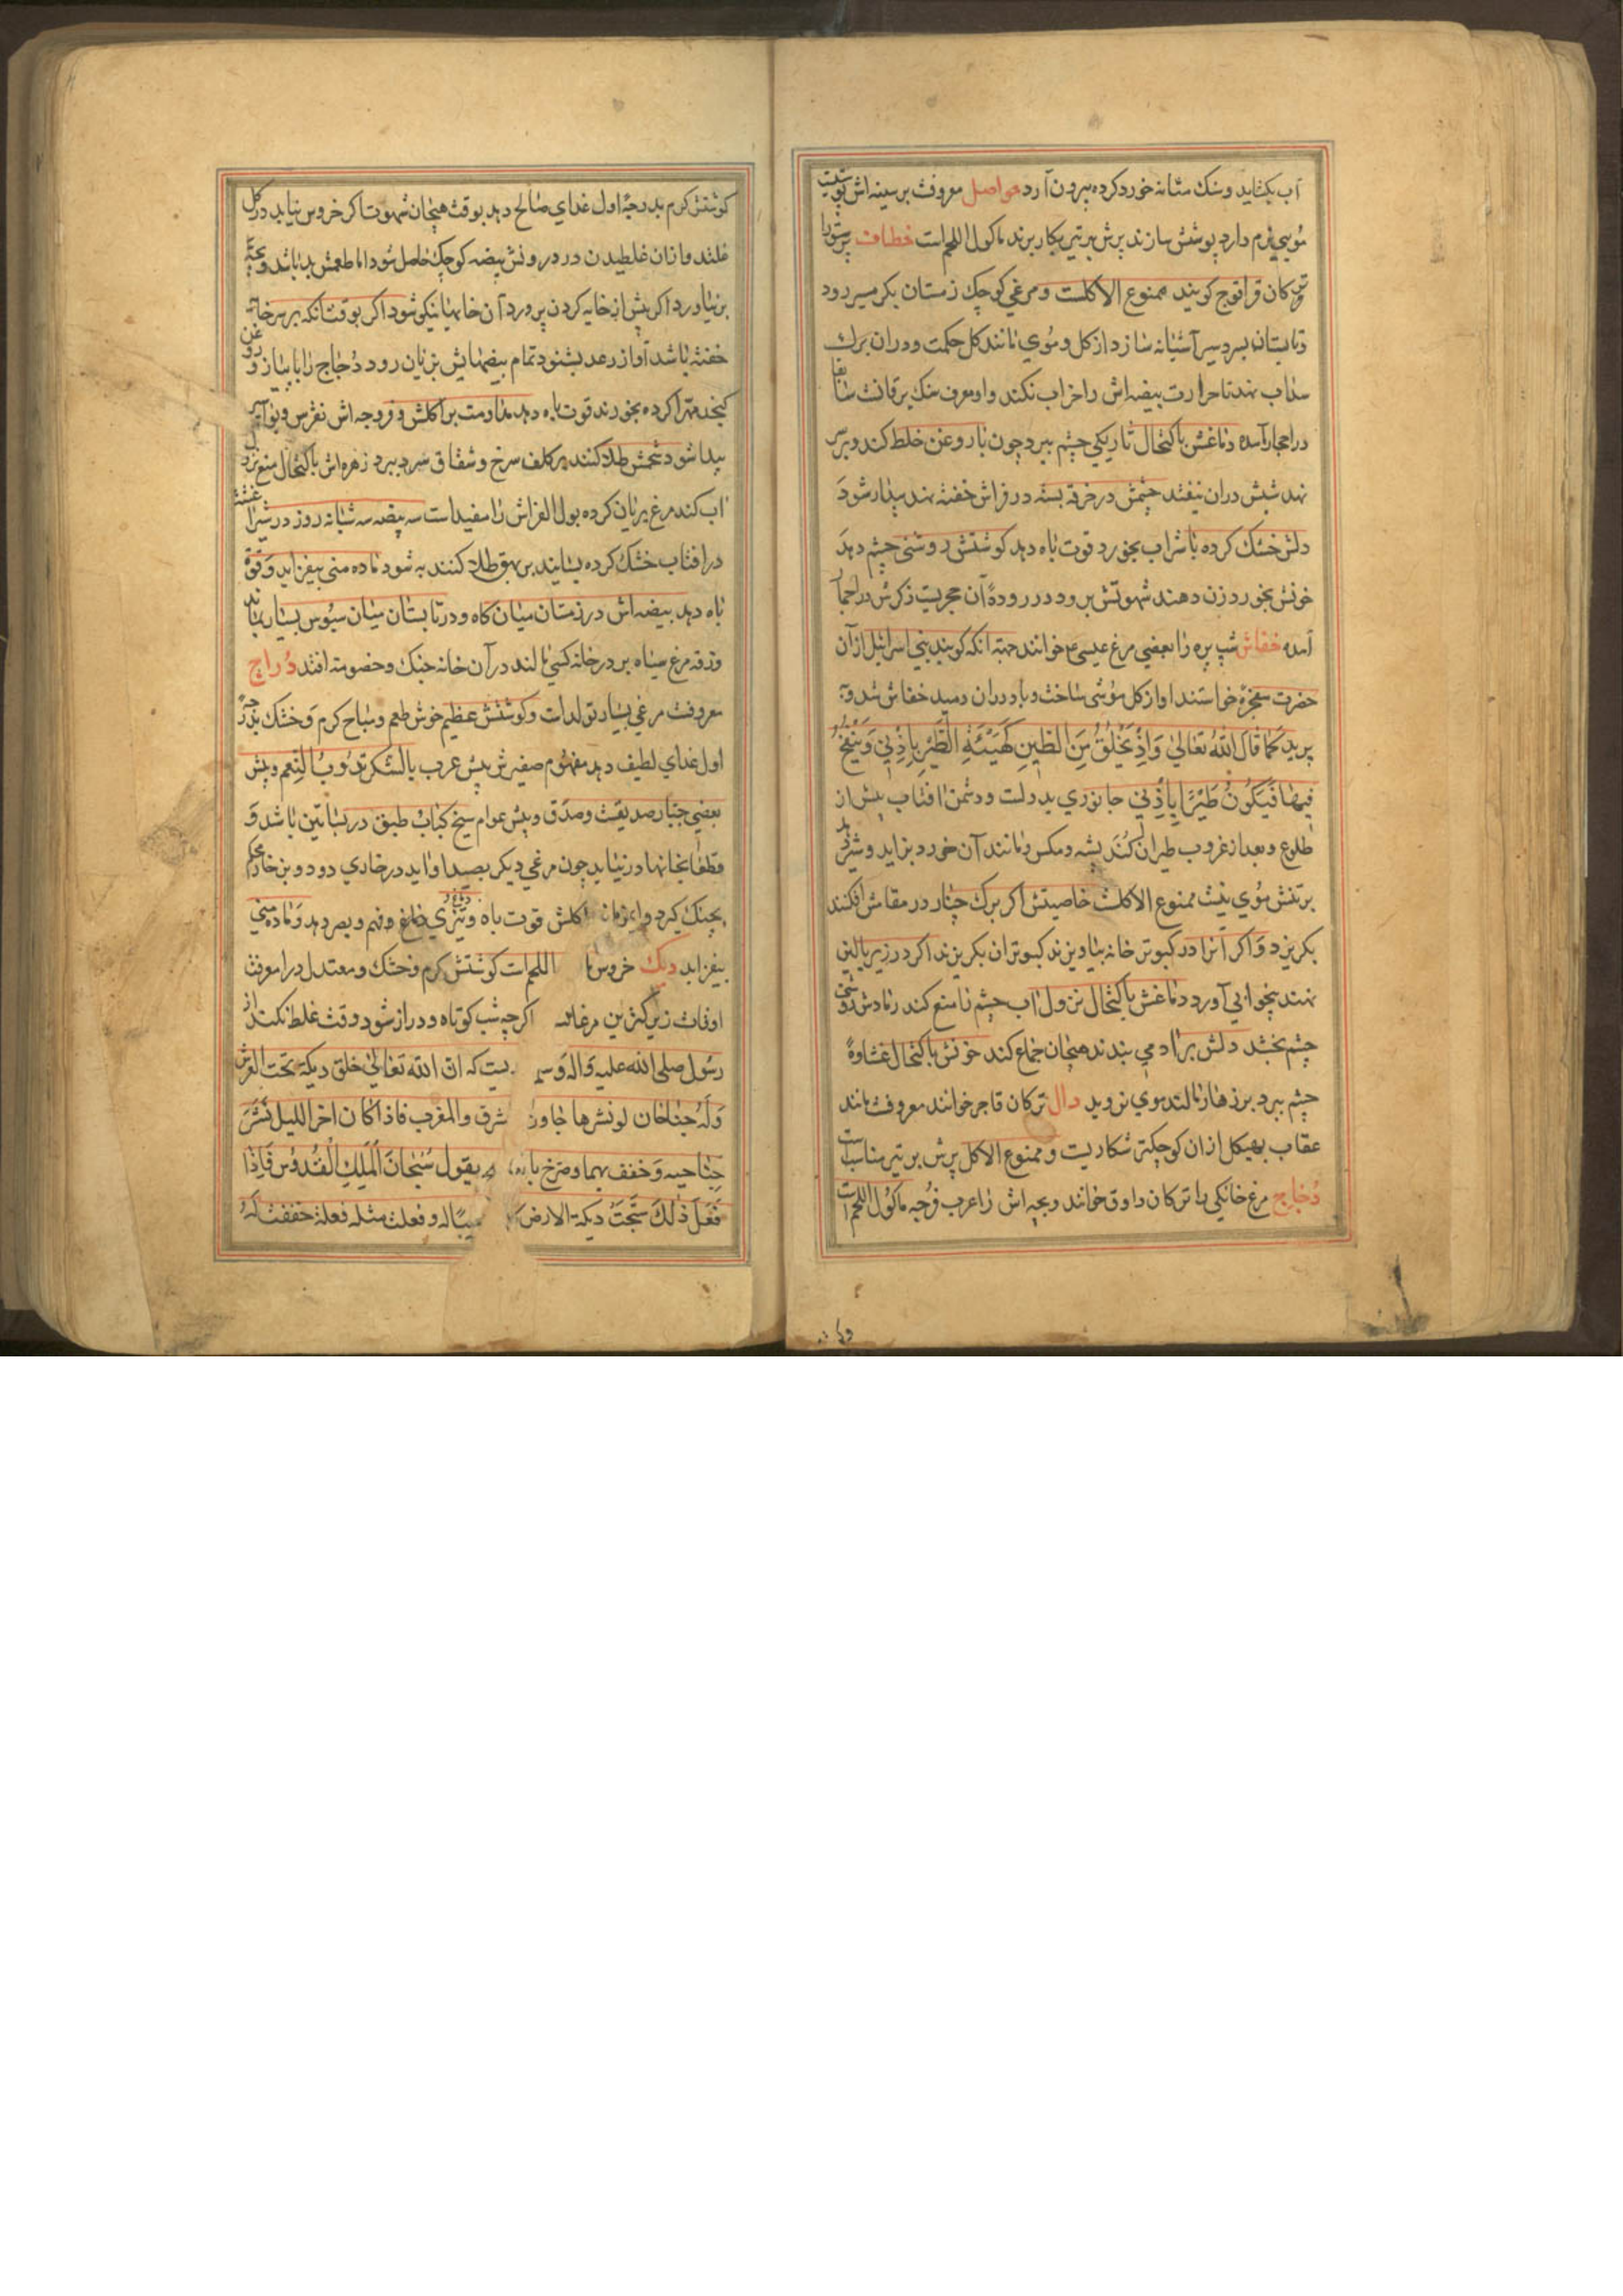 آب بکشاید و سنک مثانه خورد کرده بیرون آرد حواصل معروفست بر سینه اش پوست
موی نرم دارد پوشش سازند پرش بر تیر بکار برند ماکول اللحم است خطاف پرستو را
ترکان قرلقوج کویند ممنوع الاکلست و مرغی کوچک زمستان بکرمسیر رود
و تابستان بسردسیر آشیانه سازد از کل و موی مانند کل حکمت و در آن برك
سداب نهد تا حرارت بیضه اش را خراب نکند و او معرف سنک یرقانست سابقا
در احجار آمده دماغش باکتحال تاریکی چشم ببرد چون با روغن خلط کند و بر سر
نهد شپش در آن نیفتد چشمش در خرقه بسته در فراش خفته نهند بیدار شود
دلش خشک کرده با شراب بخورد قوت باه دهد کوشتش روشنی چشم دهد
خونش بخورد زن دهند شهوتش برود در رودهٔ آن حجریست ذکرش در احجار
آمده خفاش شب پره را بعضی مرغ عیسی ع خوانند جهة آنکه کویند بنی اسرائیل از آن
حضرت معجزه خواستند او از کل موشی ساخت و باد در آن دمید خفاش شد و
پرید کما قال الله تعالی وَاِذْ تَخْلُقُ مِنَ الطّینِ کَهَیْئَةِ الطَّیْرِ بِاِذْنی وَتَنْفُخُ
فیها فَتَکُونُ طَیْرًا بِاِذْنی جانوری بددلست و دشمن افتاب پیش از
طلوع و بعد از غروب طیران کند پشه و مکس و مانند آن خورد بزاید و شیر دهد
بر تنش موی نیست ممنوع الاکلست خاصیتش اکر برك چنار در مقامش افکنند
بکریزد و اکر آنرا در کبوتر خانه بیاویزند کبوتران بکریزند اکر در زیر بالین
نهند بیخوابی آورد دماغش باکتحال نزول آب چشم را منع کند رمادش روشنی
چشم بخشد دلش بر آدمی بندند هیجان جماع کند خونش باکتحال غشاوهٔ
چشم ببرد بر زهار مالند موی نروید دال ترکان قاجر خوانند معروفست مانند
عقاب بهیکل از آن کوچکتر شکاریست و ممنوع الاکل پرش بر تیر مناسبست
دجاج مرغ خانکی را ترکان داوق خوانند و بچه اش را عرب فروجه ماکول اللحم است
کوشتش کرم بدرجهٔ اول غذای صالح دهد بوقت هیجان شهوت اکر خروس نیابد در کل
غلتد و از آن غلطیدن در درونش بیضه کوچک حاصل شود اما طعمش بد باشد و بچه
برنیاورد اکر پیش از خایه کردن پرورد آن خایها نیکو شود اکر بوقت آنکه بر سر خایه
خفته باشد آواز رعد بشنود تمام بیضهایش بزیان رود دجاج را با پیاز و روغن
کنجد مهرا کرده بخورند قوت باه دهد مداومت بر اکلش و فروجه اش نقرس و بواسیر
پیدا شود شحمش طلا کنند بر کلف سرخ و شقاق سرد ببرد زهره اش باکتحال منع نزول
آب کند مرغ بریان کرده بول الفراش را مفید است سه بیضه سه شبانه روز در
در افتاب خشک کرده بسایند بر بهق طلا کنند به شود ماده منی بیفزاید و قوة
باه دهد بیضه اش در زمستان میان کاه و در تابستان میان سبوس بسیار بماند
و زقه مرغ سیاه بر در خانهٔ کسی مالند در آن خانه جنک و خصومت افتد دراج
معروفست مرغی بسیار تولدات و کوشتش عظیم خوش طعم و مباح کرم و خشک بدرجهٔ
اول غذای لطیف دهد مفهوم صفیرش پیش عرب بالشکر تدوم النعم و پیش
بعضی جبار صدیقست و صدق و پیش عوام سیخ کباب طبق در بساتین باشد و
قطعا بخانها درنیاید چون مرغی دیکر بصید او آید در خاری دود و بن خار محکم
بچنک کیرد اکلش قوت باه و تیزی دماغ و فهم و بصر دهد و ماده منی
بیفزاید دیک خروس اللحمات کوشتش کرم و خشک و معتدل در معرفت
اوقات زیرکترین مرغانست اکرچه شب کوتاه و دراز شود وقت غلط نکند از
رسول صلی الله علیه و اله وسلم که ان الله تعالی خلق دیکة تحت العرش
وله جناحان لو نشرها جاوز شرق والمغرب فاذا کان اخر اللیل نشر
جناحیه وخفف بهما وصرخ یقول سبحان الملك القدوس فاذا
فعل ذلك سبّحت دیکة الارض له وفعلت مثله فعلة خفقت له